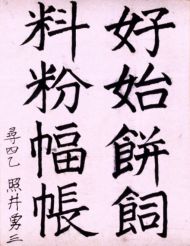 好始餅飼
料粉幅帳
尋四乙 照井勇三